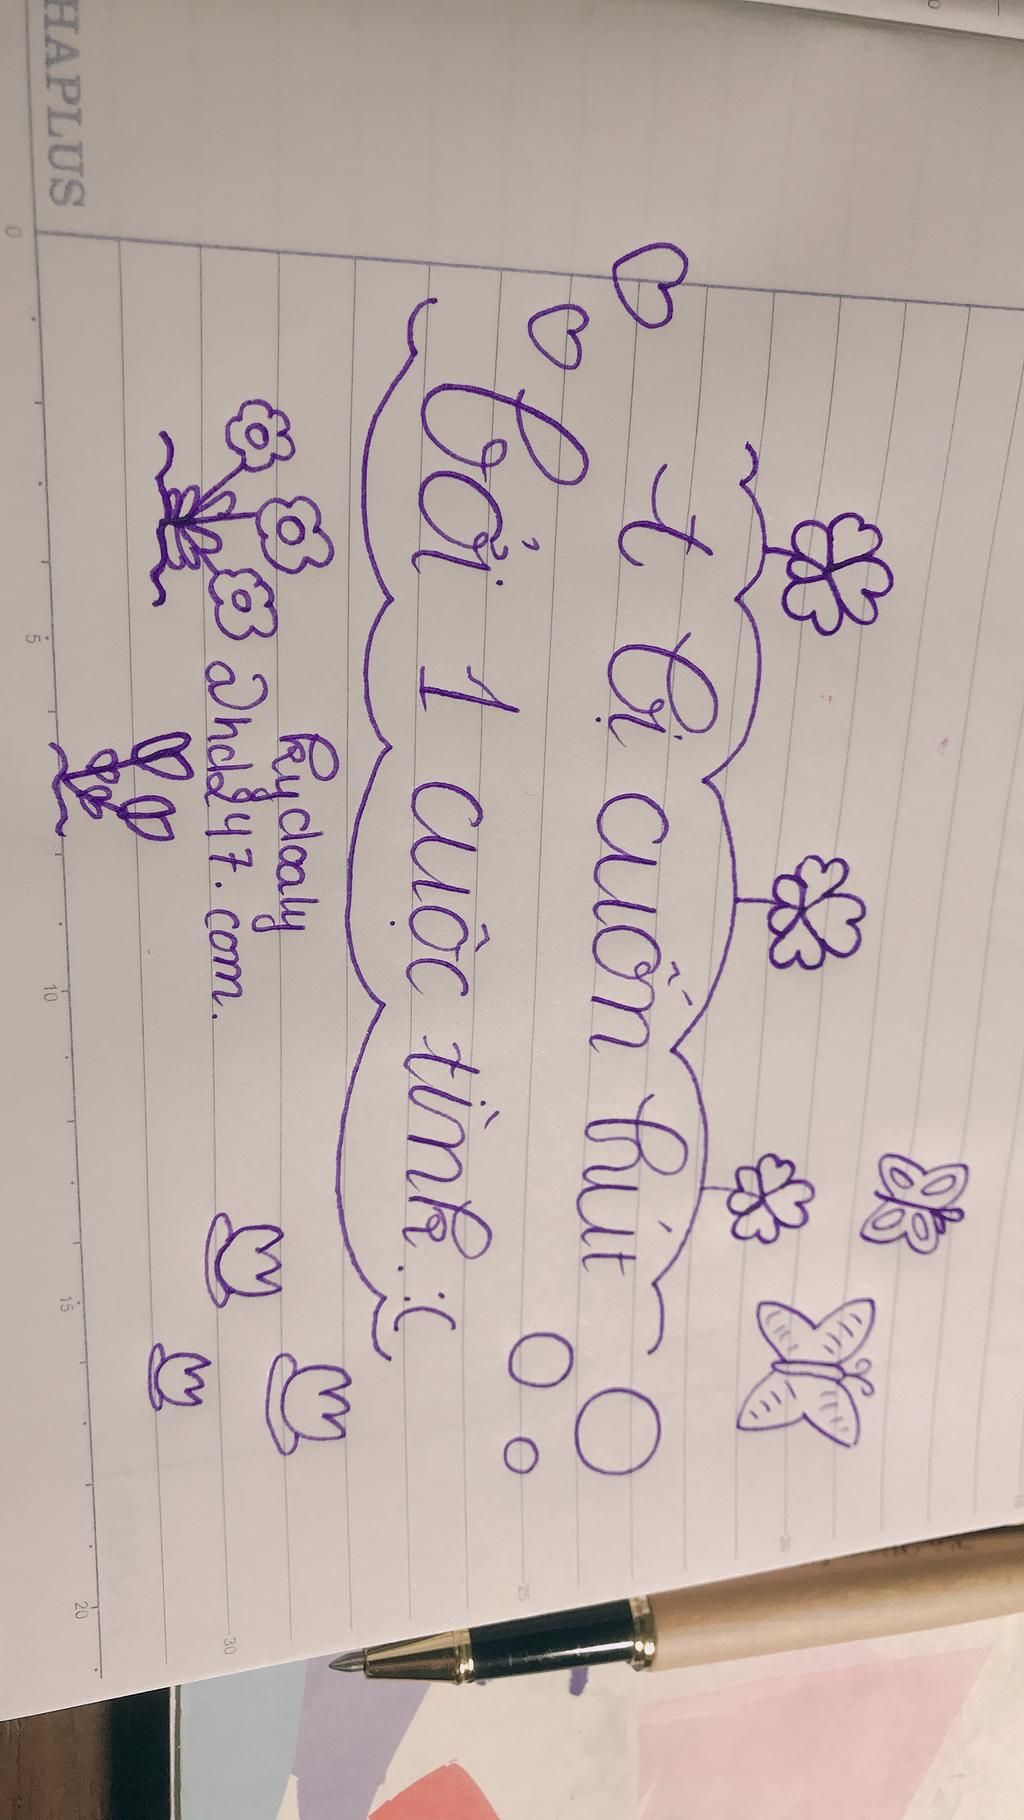 HAPLUS
t bị cuốn hút
bởi 1 cuộc tình. :(
kydaaly
0
5
10
15
20
25
30